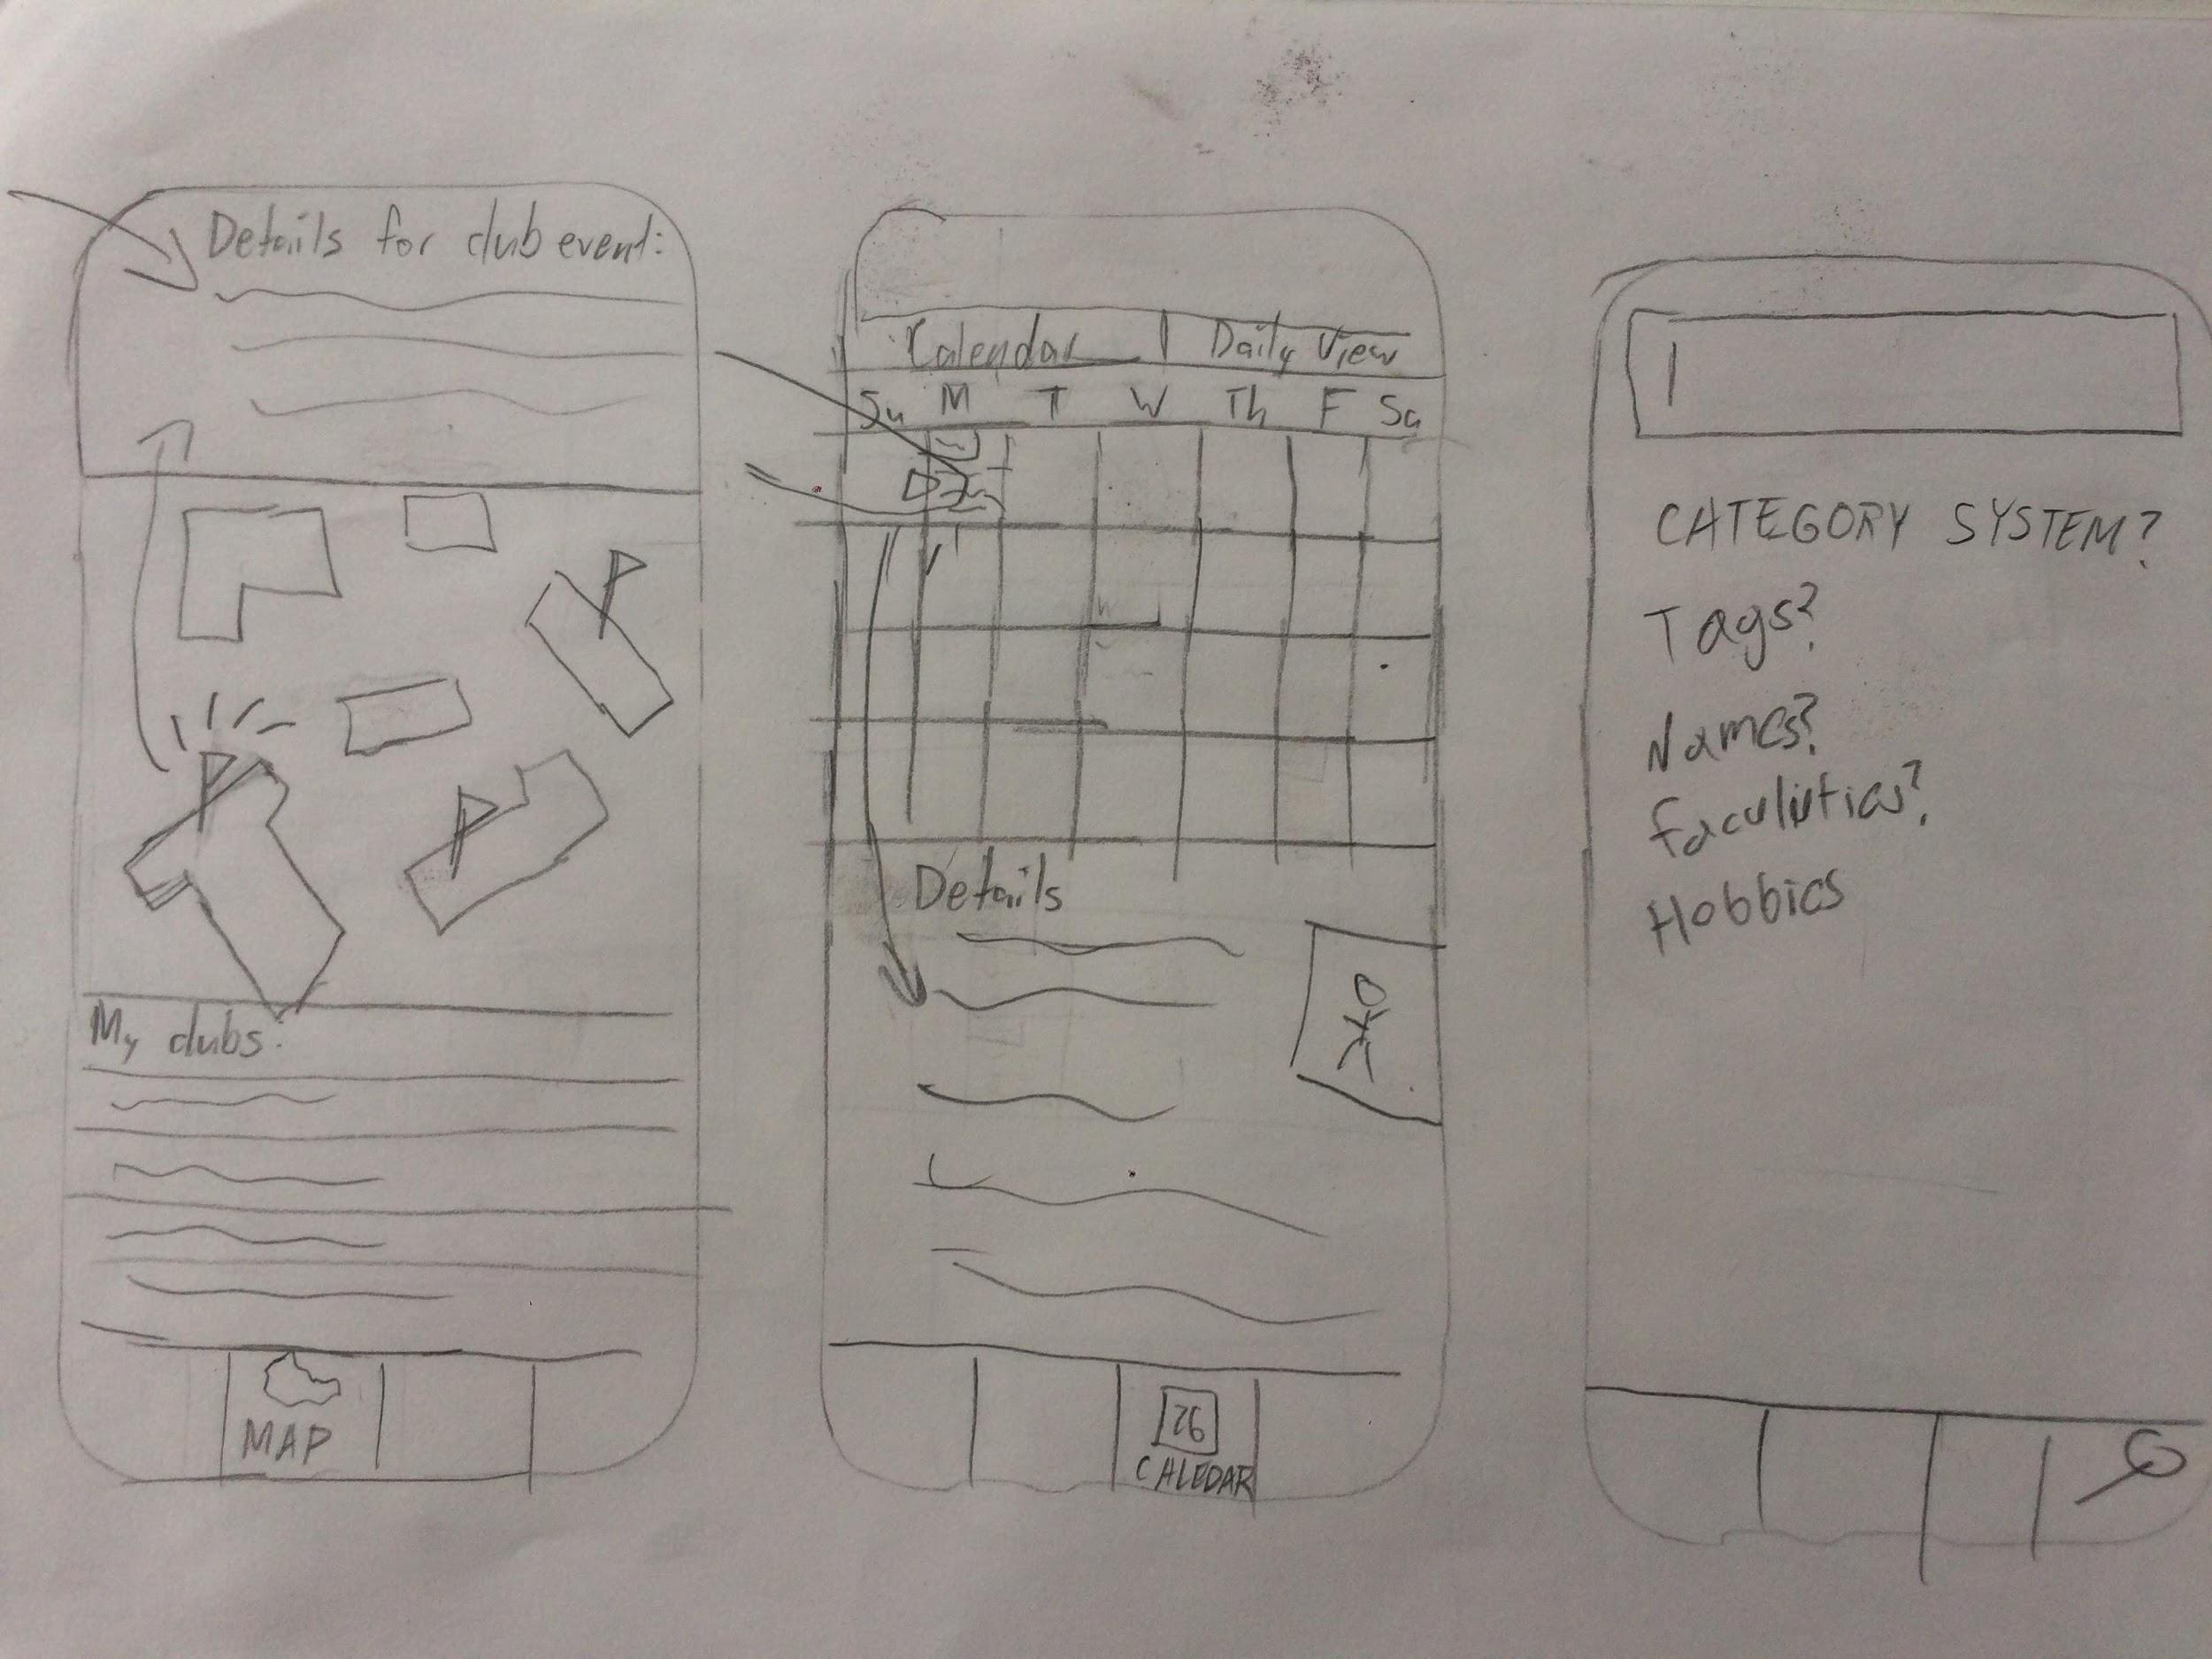 Details for club event:
My clubs:
MAP
Calendar | Daily View
Su M T W Th F Sa
Details
26
CALEDAR
CATEGORY SYSTEM?
Tags?
Names?
Faculities?
Hobbies